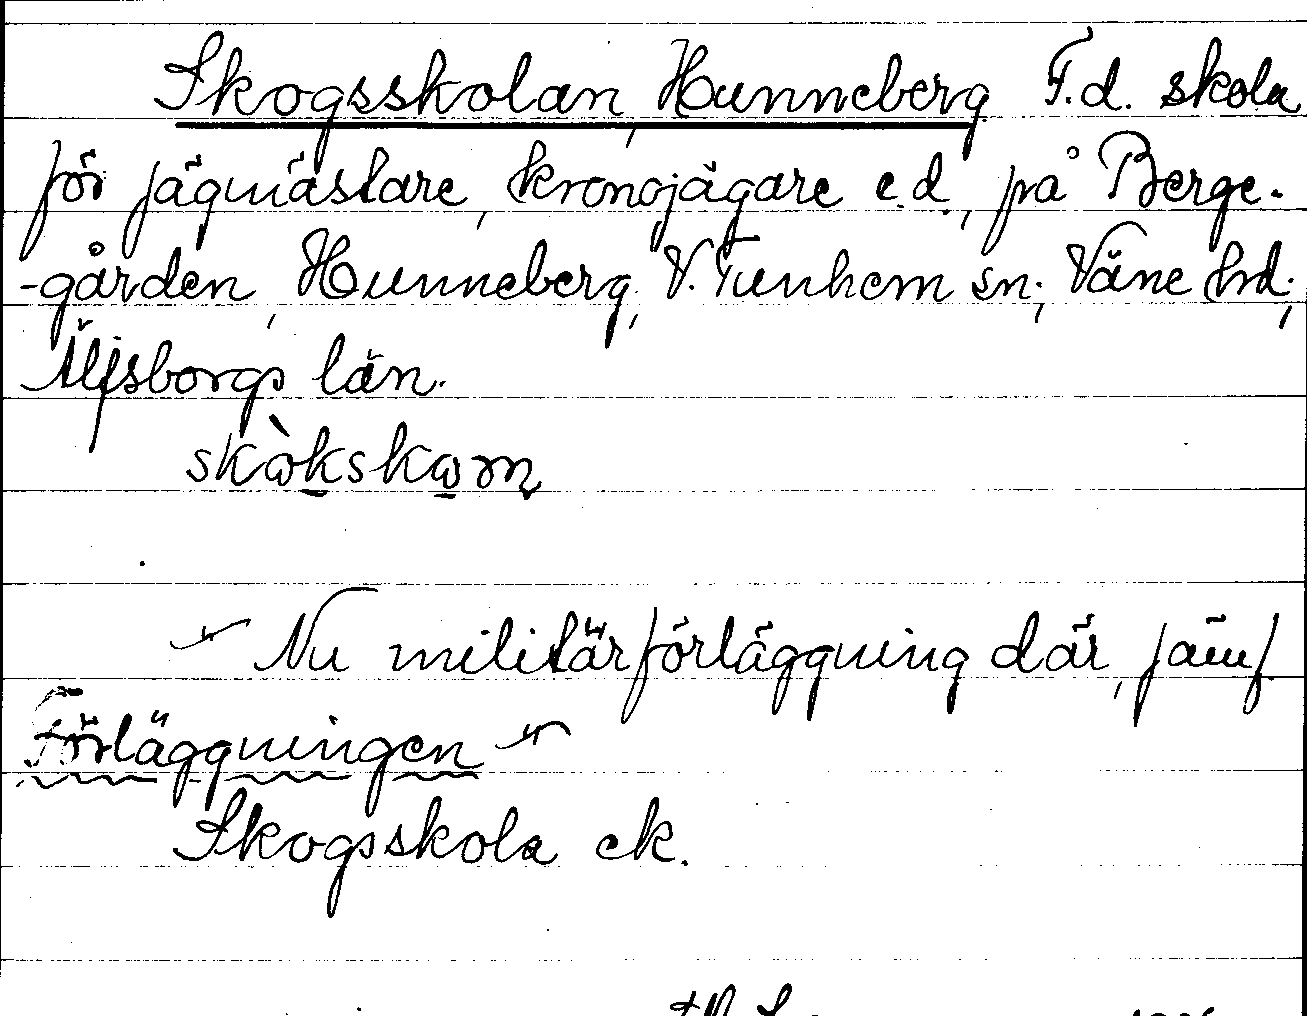 Skogsskolan, Hunneberg F.d. skola
för jägmästare, kronojägare e.d., på Berge-
-gården, Hunneberg, V. Tunhem sn, Väne hd.,
Älfsborgs län.
skòkskom
" Nu militärförläggning där, jämf
Förläggningen "
Skogsskola ek.